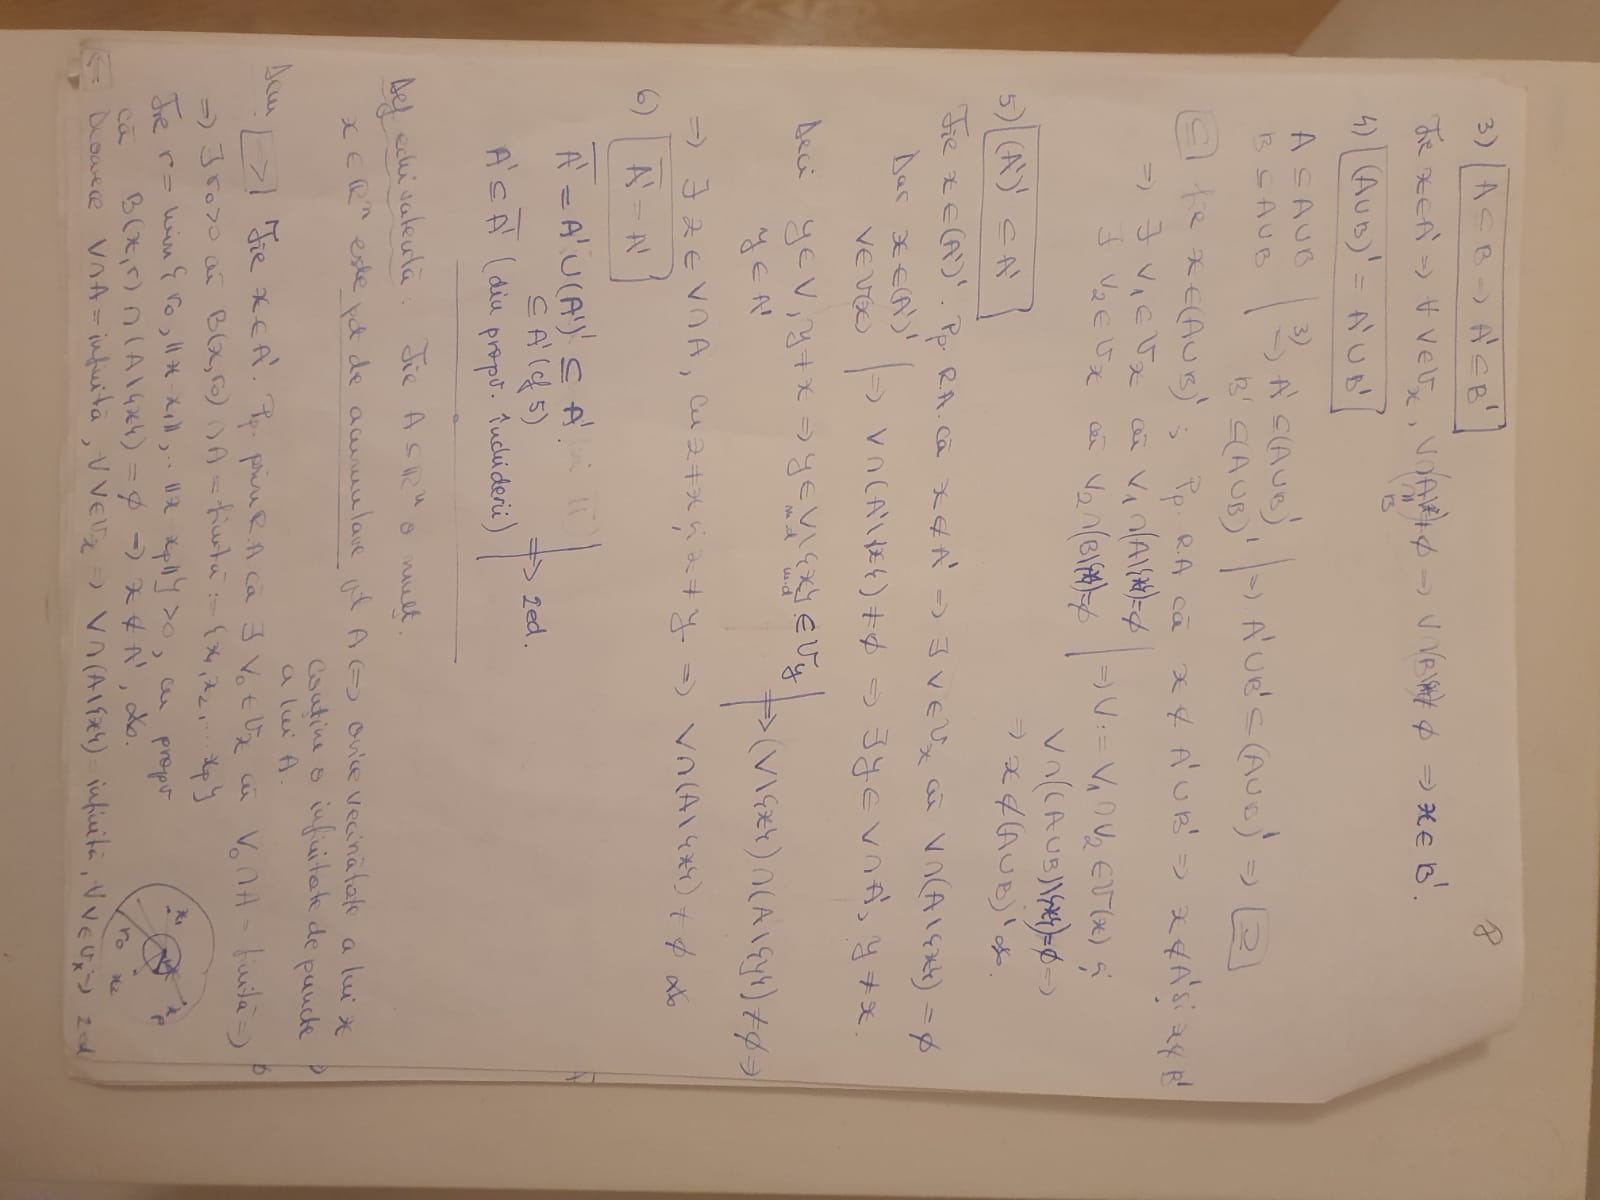 8
3) A ⊆ B ⇒ A' ⊆ B'
Fie x∈A' ⇒ ∀ V∈𝒱x, V∩(A\{x})≠∅ ⇒ V∩(B\{x})≠∅ ⇒ x∈B'.
∩|
B
4) (A∪B)' = A'∪B'
A ⊆ A∪B | 3)⇒ A' ⊆ (A∪B)' | ⇒ A'∪B' ⊆ (A∪B)' ⇒ ⊇
B ⊆ A∪B | B' ⊆ (A∪B)' |
⊆ Fie x∈(A∪B)'; Pp. R.A că x∉A'∪B' ⇒ x∉A' și x∉B'
⇒ ∃ V₁∈𝒱x aî V₁∩(A\{x})=∅ | ⇒ V:=V₁∩V₂∈𝒱(x) și
∃ V₂∈𝒱x aî V₂∩(B\{x})=∅ | V∩((A∪B)\{x})=∅ ⇒
⇒ x∉(A∪B)' do.
5) (A')' ⊆ A'
Fie x∈(A')'. Pp. R.A. că x∉A' ⇒ ∃ V∈𝒱x aî V∩(A\{x})=∅
Dar x∈(A')' | ⇒ V∩(A'\{x})≠∅ ⇒ ∃ y∈V∩A', y≠x.
V∈𝒱(x) |
Deci y∈V, y≠x ⇒ y∈V\{x}∈𝒱y | ⇒ (V\{x})∩(A\{y})≠∅ ⇒
y∈A' |
⇒ ∃ z∈V∩A, cu z≠x și z≠y. ⇒ V∩(A\{x})≠∅ do
6) A̅'̅ = A'
A̅'̅ = A'∪(A')' ⊆ A'. |
⊆ A' (cf 5) | ⇒ qed.
A' ⊆ A̅'̅ (din propr. închiderii) |
Def echivalentă: Fie A⊆ℝⁿ o mulț.
x∈ℝⁿ este pct de acumulare pt A ⇔ orice vecinătate a lui x
conține o infinitate de puncte
a lui A.
Dem. ⇒ Fie x∈A'. Pp. prin R.A că ∃ V₀∈𝒱x aî V₀∩A = finită ⇒
⇒ ∃ r₀>0 aî B(x,r₀)∩A = finită := {x₁,x₂,...xp}
Fie r = min{r₀, ||x-x₁||,..||x-xp||}>0, cu propr
că B(x,r)∩(A\{x})=∅ ⇒ x∉A', do.
x₁ x r₀ x₂ xp
⇐ Deoarece V∩A = infinită, ∀V∈𝒱x ⇒ V∩(A\{x}) = infinită, ∀V∈𝒱x ⇒ qed